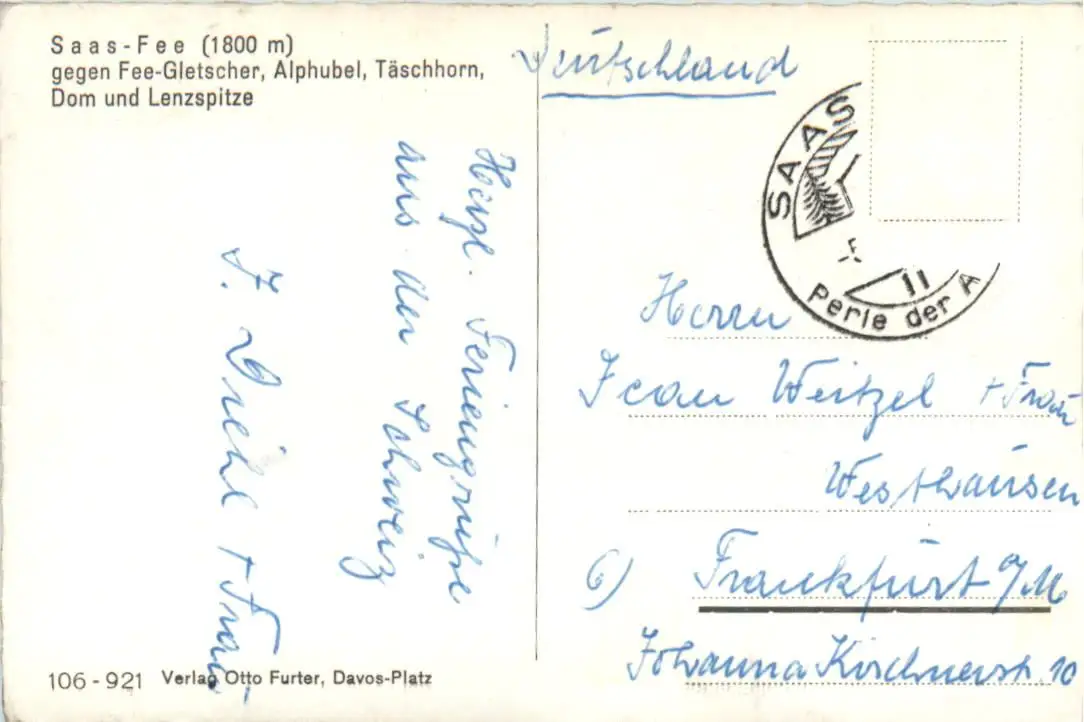 Saas-Fee (1800 m)
gegen Fee-Gletscher, Alphubel, Täschhorn,
Dom und Lenzspitze
Herzl. Feriengrüße
aus der Schweiz
F. Diehl + Frau
106-921 Verlag Otto Furter, Davos-Platz
Deutschland
SAAS
Perle der A
Herrn
Jean Weitzel + Frau
Westhausen
6) Frankfurt a/M
Johanna Kirchnerstr. 10